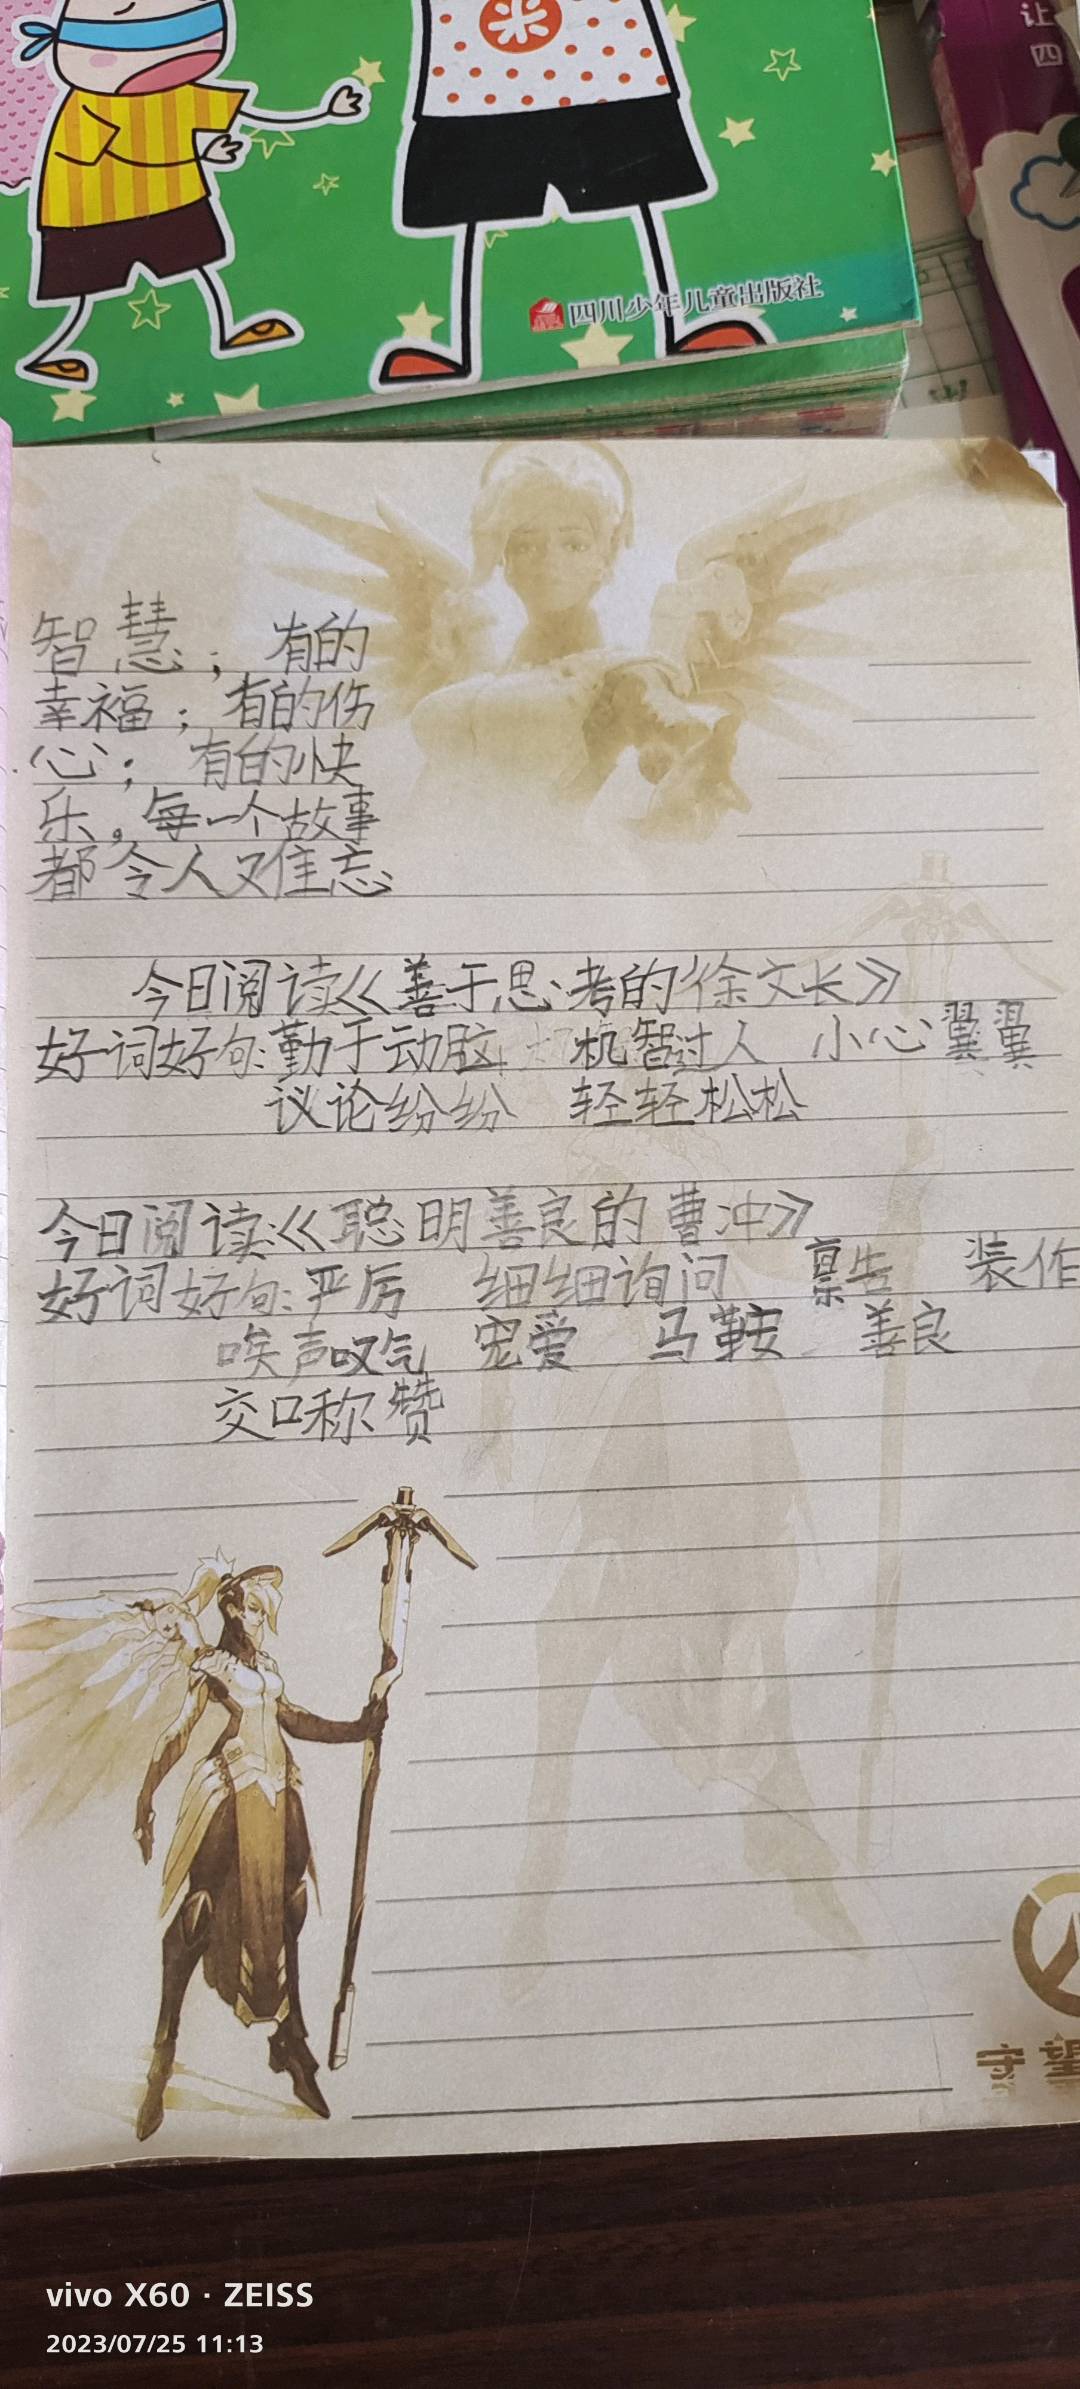 米
让
四
四川少年儿童出版社
智慧；有的
幸福；有的伤
心；有的快
乐，每一个故事
都令人难忘
今日阅读《善于思考的徐文长》
好词好句：勤于动脑 机智过人 小心翼翼
议论纷纷 轻轻松松
今日阅读：《聪明善良的曹冲》
好词好句：严厉 细细询问 禀告 装作
唉声叹气 宠爱 马鞍 善良
交口称赞
守望
vivo X60 · ZEISS
2023/07/25 11:13